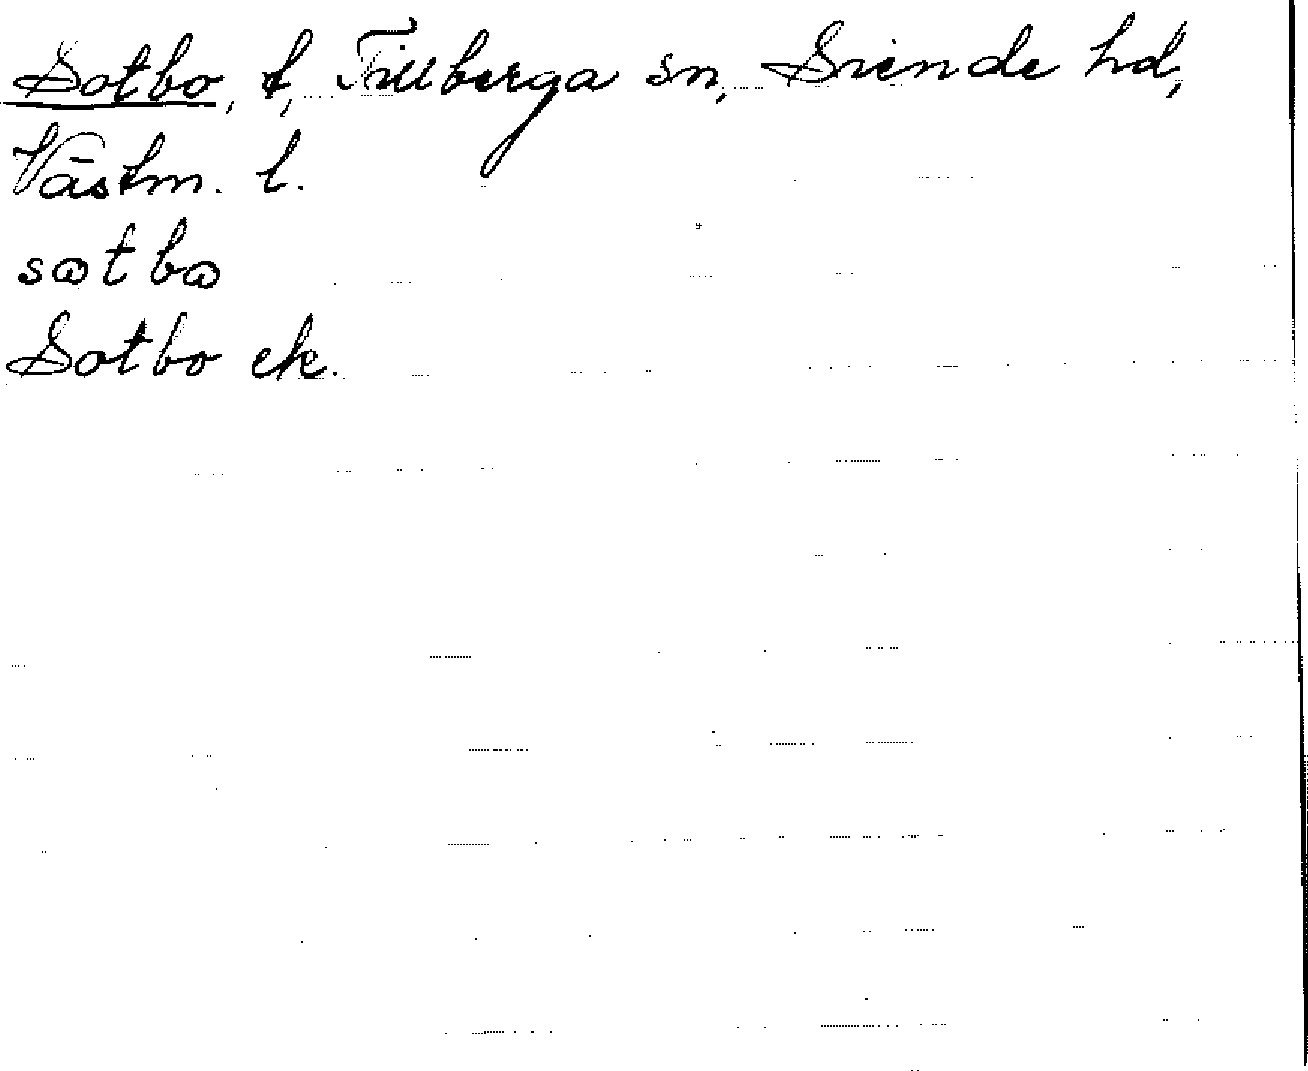 Sotbo, t, Tillberga sn, Siende hd,
Västm. l.
sɷtbɷ
Sotbo ek.